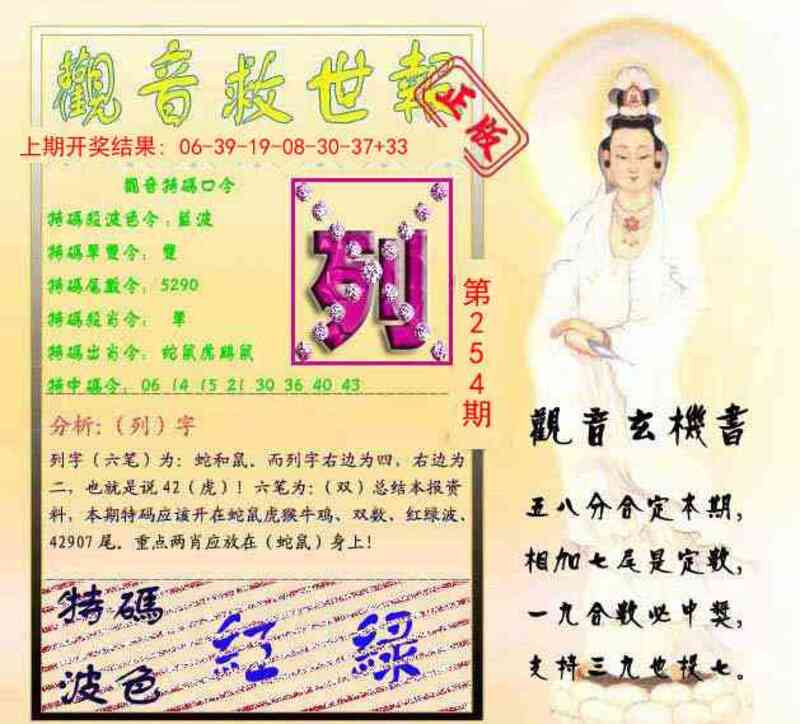 觀音救世報
正版
上期开奖结果：06-39-19-08-30-37+33
觀音特碼口令
特碼段波色令：藍波
特碼單雙令：雙
特碼尾數令：5290
特碼段肖令：單
特碼出肖令：蛇鼠虎 鼠
特中碼令：06 14 15 21 30 36 40 43
列
第254期
分析：（列）字
列字（六笔）为：蛇和鼠．而列字右边为四，右边为
二，也就是说42（虎）！六笔为：（双）总结本报资
料，本期特码应该开在蛇鼠虎猴牛鸡、双数、红绿波、
42907尾．重点两肖应放在（蛇鼠）身上！
特碼
波色
紅 綠
觀音玄機書
五八分合定本期，
相加七尾是定数，
一九合数必中獎，
支持三九也提七。